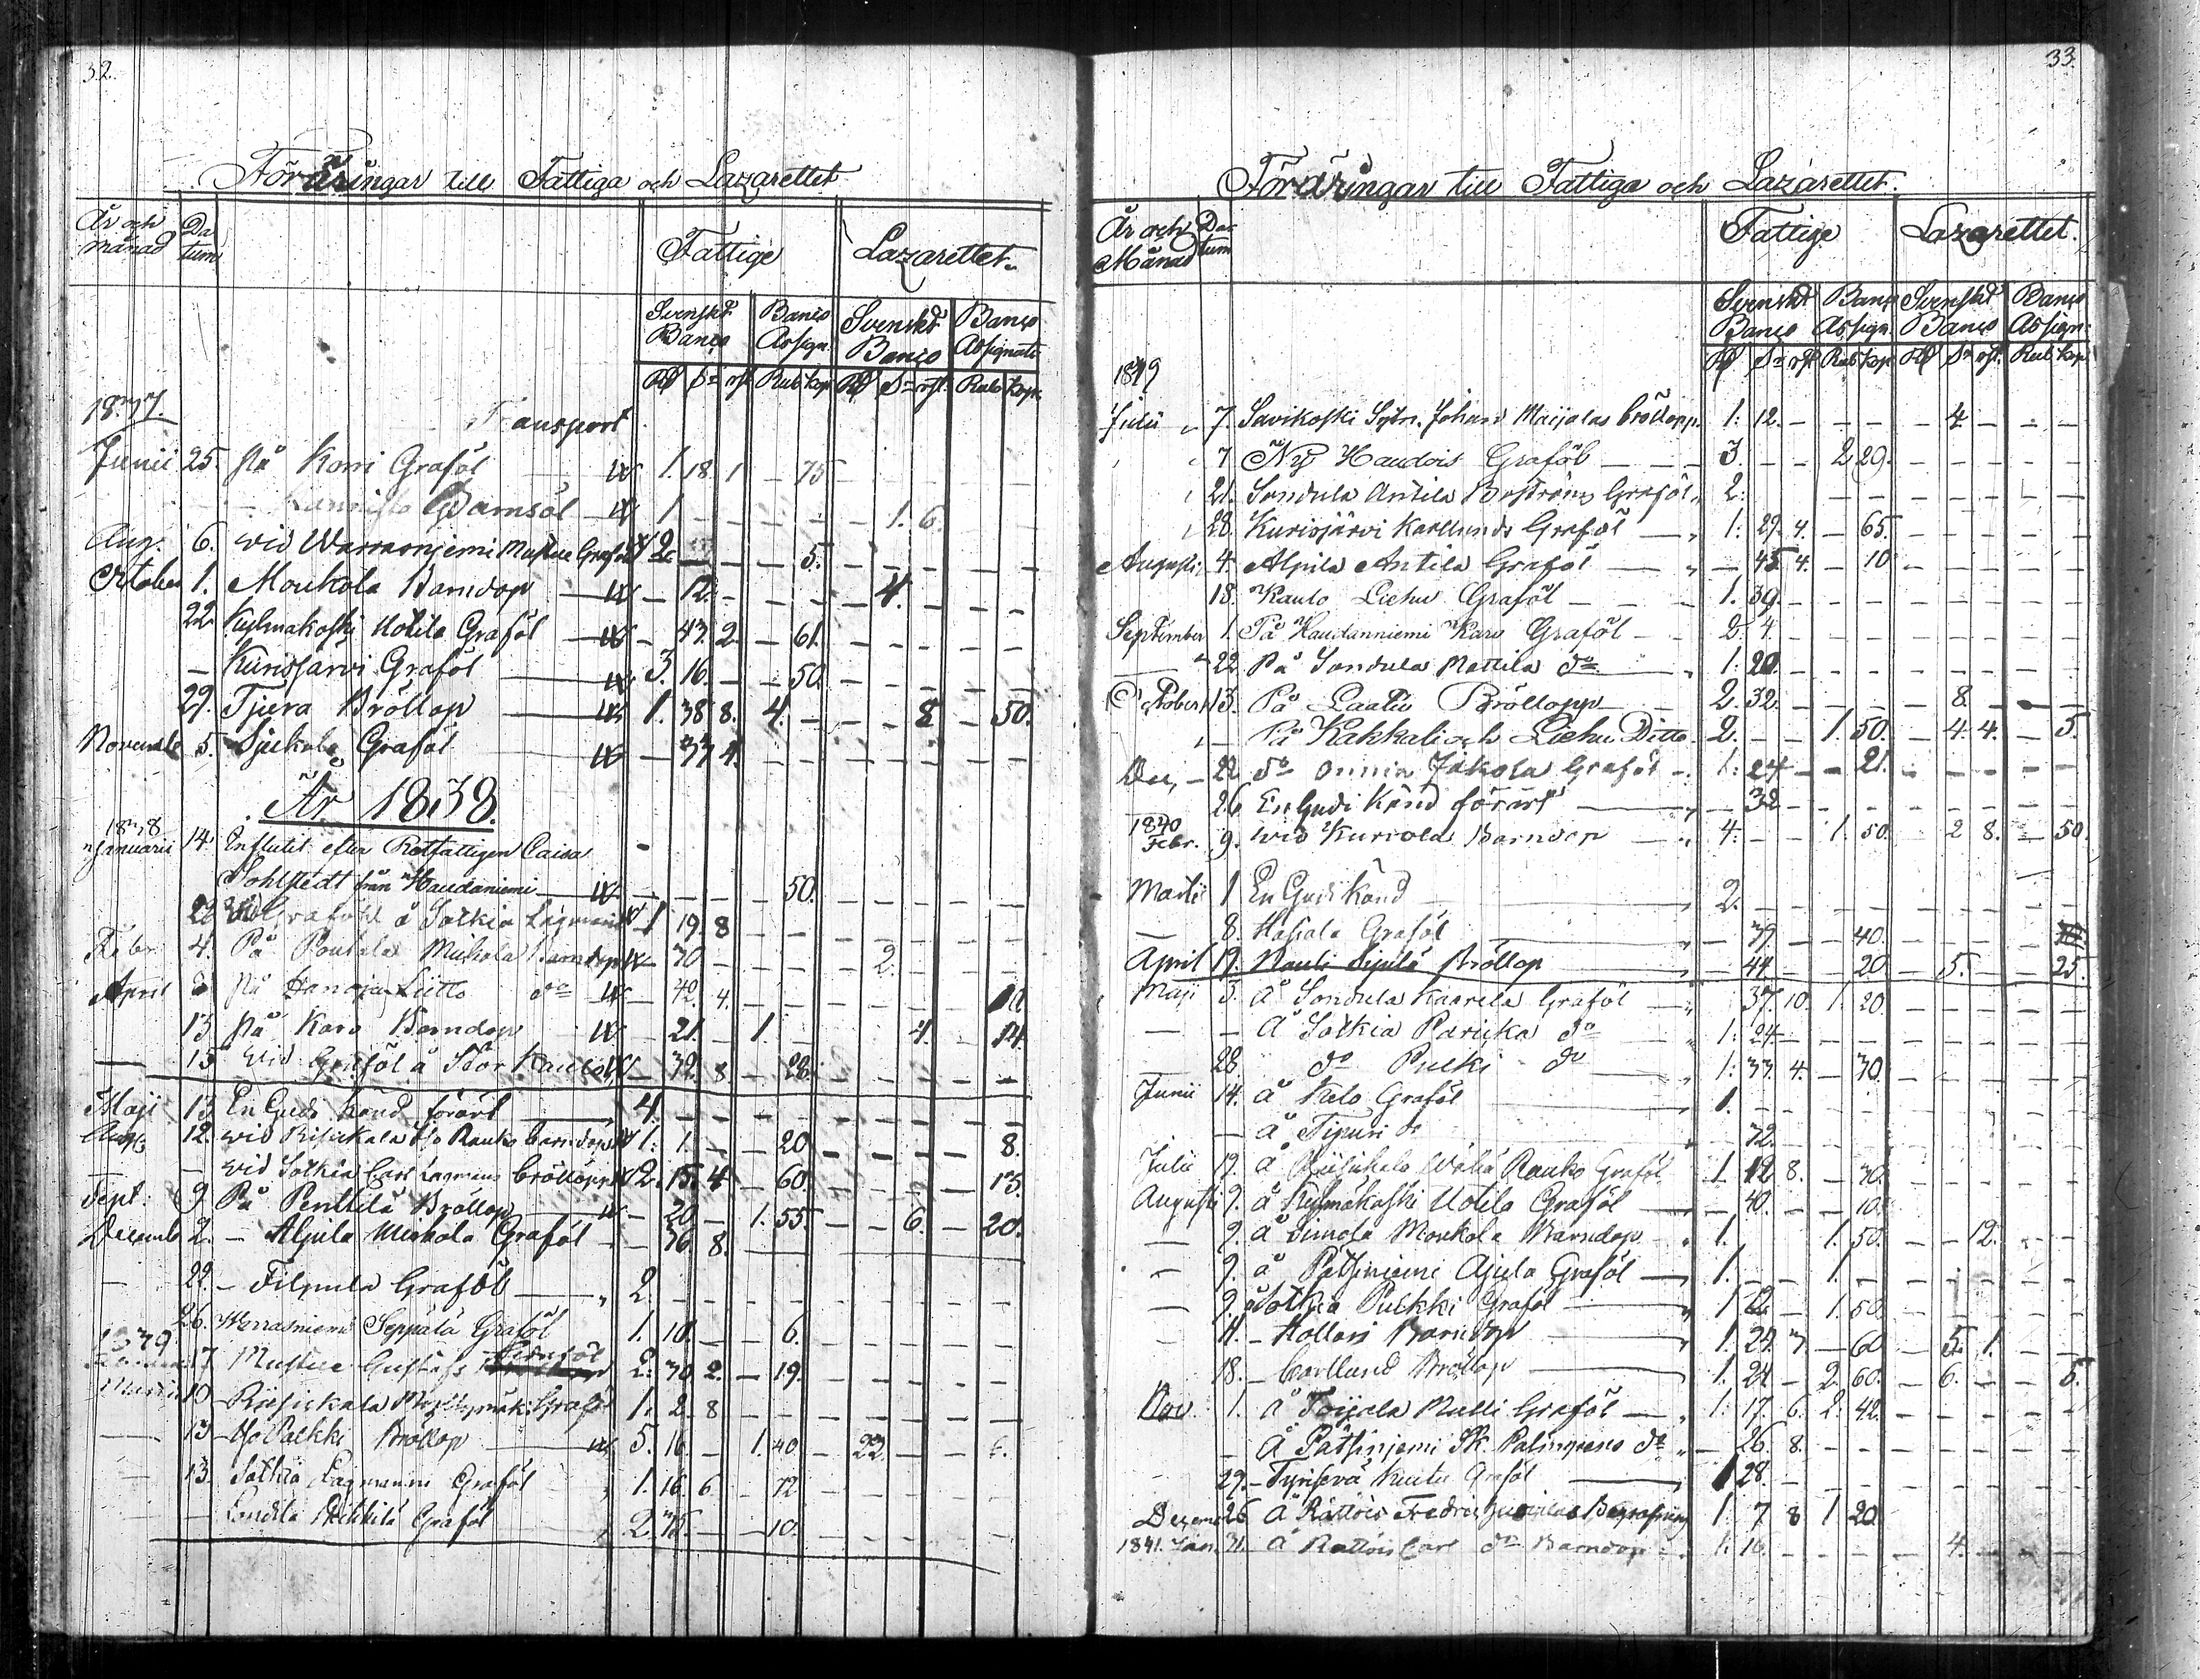 32.
Föräringar till Fattiga och Lazarettet
År och Månad Datum
Fattige Lazarettet
Svenskt Banco Banco Assign. Svenskt Banco Banco Assignat.
Rd Sk rst. Rub kop Rd Sk rst. Rub kop.
1837.
Transport
Junii 25. på Korri Graföl 1. 18 1 – 75
Barnsöl 1 – – – – – 1. 6.
Aug. 6. wid Warrasnjemi Mustue Graföl 2 – – – 5.
October 1. Moukola Barndop – 12. – – – – 4.
22 Kylmakoski Uotila Graföl – 43 2 – 61.
– Kurisjärvi Graföl 3. 16. – – 50.
29. Tjura Bröllop 1. 38 8. 4. – – – 8 – 50.
Novemb 5. Sjukola Graföl – 33 4.
År 1838.
1838
Januarii 14. Influtit efter Rotfattigen Caisa
Sohlstedt från Haudaniemi – – – – 50.
28 Graföhl å Sotkia Lagmans 1 19. 8
Febr. 4. På Poukala Mickola Barndop – 30 – – – – 2.
April 8 på Liitto do – 42. 4.
13 på Karo Barndop – 21. – 1. – – – 4. – 14.
– 15 Wid Graföl å Stor Kaulo – 32. 8. – 28.
Maji 13 En Guds känd förärt 4.
Aug. 12. wid Risickala Yso Rauko barndop 1. 1. – – 20 – – – – 8.
– wid Sotkia Carl Lagmans bröllopp 2. 15. 4 – 60. – – – – 13.
Sept. 9 På Penttilä Bröllop – 20 – 1. 55 – – 6. – 20.
Decemb 2. – Aljula Mickola Graföl – 36. 8.
– 22. – Filpula Graföl 2.
26. Warrasniemi Seppälä Graföl 1. 10. – – 6.
1839
17 Mustue Gustafs Graföl 2. 30 2. – 19.
Martii 10 – Risickala Graföl 1. 2. 8
– 13 – Yso Palkki Bröllop 5. 16. – 1. 40. – 22.
– 13. Sotkia Lagmanni Graföl 1. 16 6 – 12
– Sondila Pekkilä Graföl 2. – – 10.
33.
Föräringar till Fattiga och Lazarettet.
År och Månad Datum
Fattige Lazarettet.
Svenskt Banco Banco Assign. Svenskt Banco Banco Assign.
Rd Sk rst Rub kop Rd Sk rst. Rub kop
1839
Julii 7. Savikoski Sytn. Johan Maijalas bröllopp 1. 12. – – – – 4. – – –
7 Ny Haudois Graföl 3. – – 2 29.
21. Sondula Antila Boströms Graföl 2.
28. Kurisjärvi Karllunds Graföl 1. 29. 4. – 65.
Augusti 4. Alpila Antila Graföl – 45 4. – 10
18. Kaulo Liehu Graföl 1. 39.
September 1. På Haudanniemi Karo Graföl 2. 4.
22. På Sondula Mattila do 1. 20.
October 13. På Laatu Bröllopp 2. 32. – – – – 8. – – –
– På Kakkali och Liehu Ditto 2. – – 1. 50. – 4. 4. – 5.
Dec. – 22. do Onnia Jäkola Graföl 1. 24 – – 21.
26 En Guds känd förärt – 32
1840
Febr. 9. wid Kurivola Barndop 4. – – 1. 50. – 2 8. – 50.
Martii 1 En Guds känd 2.
– 8. Hasiala Graföl – 37. – – 40.
April 19. Nauli Sipilä Bröllop – 44 – – 20 – 5. – – 25.
Maji 3. Å Sondula Kaarela Graföl 37. 10. 1. 20
– – Å Sotkia Paricka do 1. 24
28 do Pulki do 1. 33. 4. – 30.
Junii 14. Å Kelo Graföl 1.
– Å Tipuri do 32.
Julii 19. Å Risickala Wähä Rauko Graföl 1. 12 8. – 30.
Augusti 9. å Kylmäkoski Uotila Graföl – 40. – – 10.
– 9. å Simola Moukola Barndop 1. 1. 50. – 12.
– 9. å Pätsiniemi Ajula Graföl 1. – – 1.
– 9. å Sotkia Pulkki Graföl 1 12 – 1. 50
11. – Hollari Barndop 1. 24. 3 – 60 – 5. 1.
18. – Carllund Bröllop 1. 24 – 2. 60. – 6. – – 5.
Nov. 1. å Toijala Nulli Graföl 1. 17. 6. 2. 42.
– Å Pätsinjemi Sk. Palingrens do – 26. 8.
29. – Kuitu Graföl 1 28.
Decemb 26 Å Rättois Fredric Begrafning 1. 7 8 1 20
1841. Jan. 31. Å Rattois Carl do Barndop 1. 16. – – – – 4.